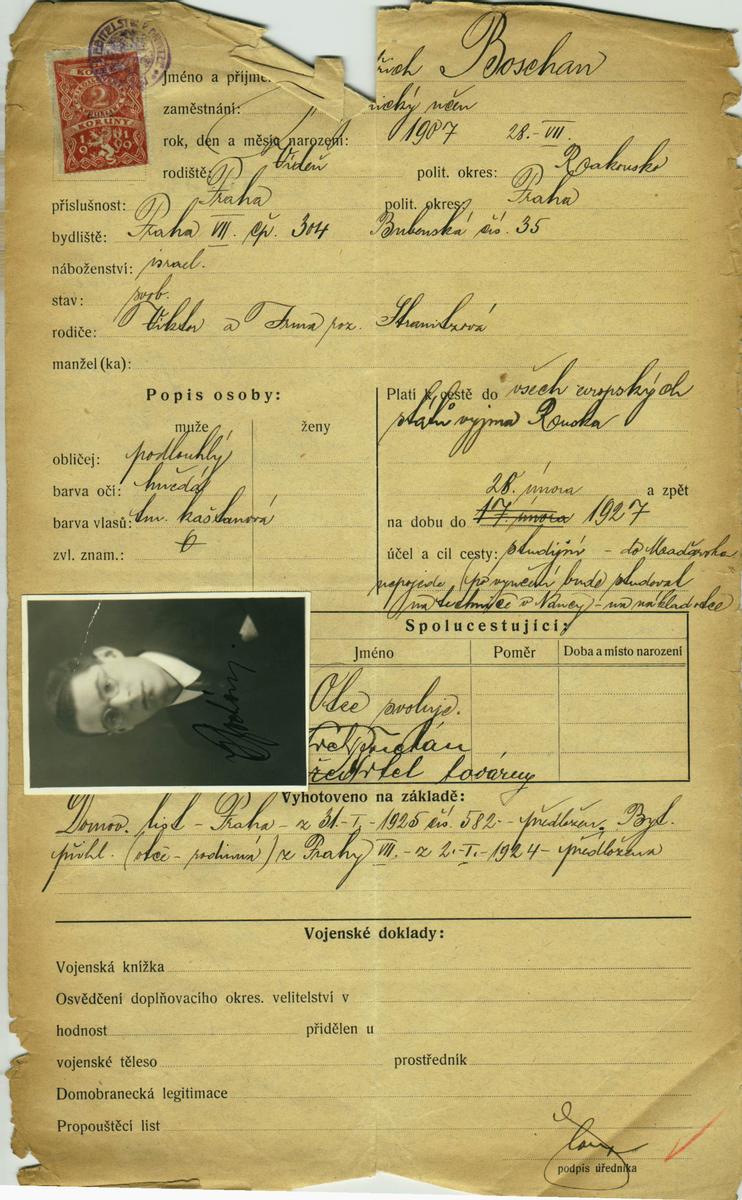 KO
2
KORUNY
Jméno a příjme
řich Boschan
zaměstnání:
nický učeň
rok, den a měsíc narození: 1907 28.-VII.
rodiště: Vídeň polit. okres: Rakousko
příslušnost: Praha polit. okres: Praha
bydliště: Praha VII. čp. 304 Bubenská čís. 35
náboženství: israel.
stav: svob.
rodiče: Viktor a Irma roz. Stranitzová
manžel (ka):
Popis osoby:
muže ženy
obličej: podlouhlý
barva očí: hnědá
barva vlasů: tm. kaštanová
zvl. znam.:
Platí k cestě do všech evropských
států vyjma Ruska
28. února a zpět
na dobu do 17. února 1927
účel a cíl cesty: studijní - do Maďarska
nepojede (po vyučení bude studovat
na technice v Nancy) - na náklad otce
Spolucestující:
Jméno Poměr Doba a místo narození
Otec svoluje.
továrny
Vyhotoveno na základě:
Domov. list - Praha - z 31.-I.-1925 čís. 582 - předložen. Byt.
přihl. (otce - rodinná) z Prahy VII. - z 2.-I.-1924 - předložena
Vojenské doklady:
Vojenská knížka
Osvědčení doplňovacího okres. velitelství v
hodnost přidělen u
vojenské těleso prostředník
Domobranecká legitimace
Propouštěcí list
podpis úředníka